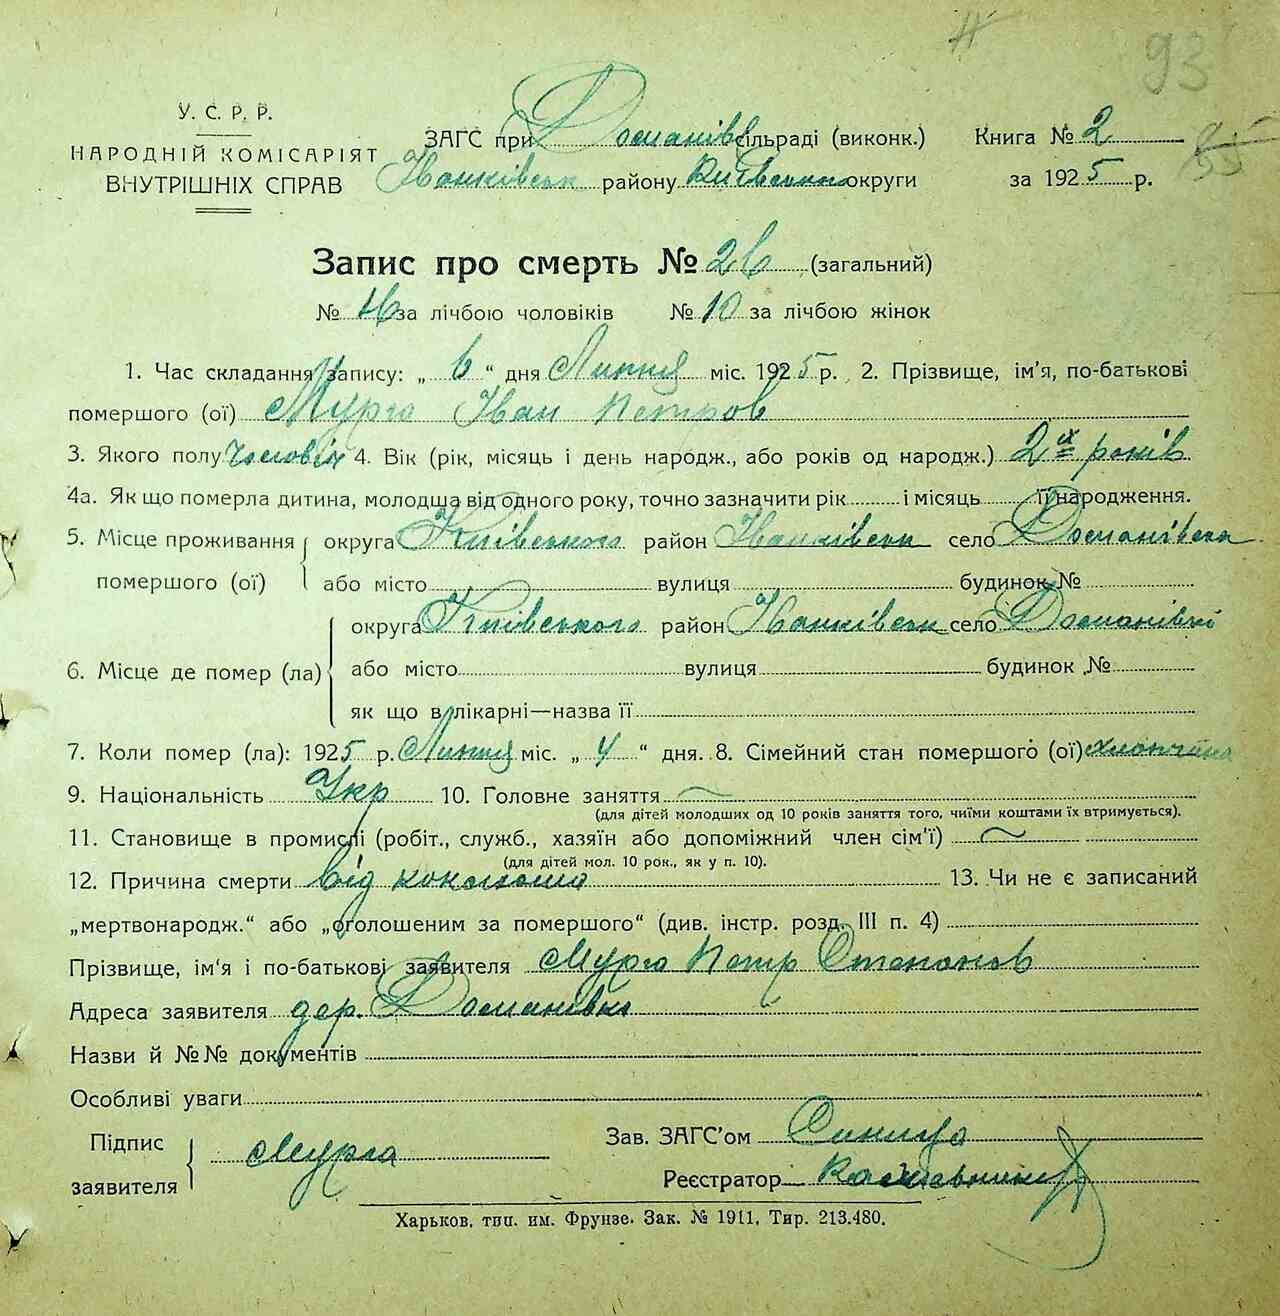 93
У. С. Р. Р.
НАРОДНІЙ КОМІСАРІЯТ
ВНУТРІШНІХ СПРАВ
ЗАГС при Доманівс сільраді (виконк.)
Іванківськ району Київськ округи
Книга № 2
за 1925 р.
Запис про смерть № 26 (загальний)
№ 16 за лічбою чоловіків № 10 за лічбою жінок
1. Час складання запису: „ 6 “ дня Липня міс. 1925 р. 2. Прізвище, ім'я, по-батькові
помершого (ої) Мурга Іван Петров
3. Якого полу Чоловік 4. Вік (рік, місяць і день народж., або років од народж.) 2х років
4а. Як що померла дитина, молодща від одного року, точно зазначити рік і місяць її народження.
5. Місце проживання помершого (ої) округа Київського район Іванківськ село Доманівська
або місто вулиця будинок №
6. Місце де помер (ла) округа Київського район Іванківськ село Доманівкі
або місто вулиця будинок №
як що в лікарні—назва її
7. Коли помер (ла): 1925 р. Липня міс. „ 4 “ дня. 8. Сімейний стан помершого (ої)
9. Національність Укр 10. Головне заняття ~
(для дітей молодших од 10 років заняття того, чиїми коштами їх втримується).
11. Становище в промислі (робіт., служб., хазяїн або допоміжний член сім'ї) ~
(для дітей мол. 10 рок., як у п. 10).
12. Причина смерти від коклюша 13. Чи не є записаний
„мертвонародж.“ або „оголошеним за помершого“ (див. інстр. розд. III п. 4)
Прізвище, ім'я і по-батькові заявителя Мурга Петр Степанов
Адреса заявителя дер. Доманівка
Назви й №№ документів
Особливі уваги
Підпис заявителя Мурга
Зав. ЗАГС'ом Синица
Реєстратор
Харьков, тип. им. Фрунзе. Зак. № 1911. Тир. 213.480.